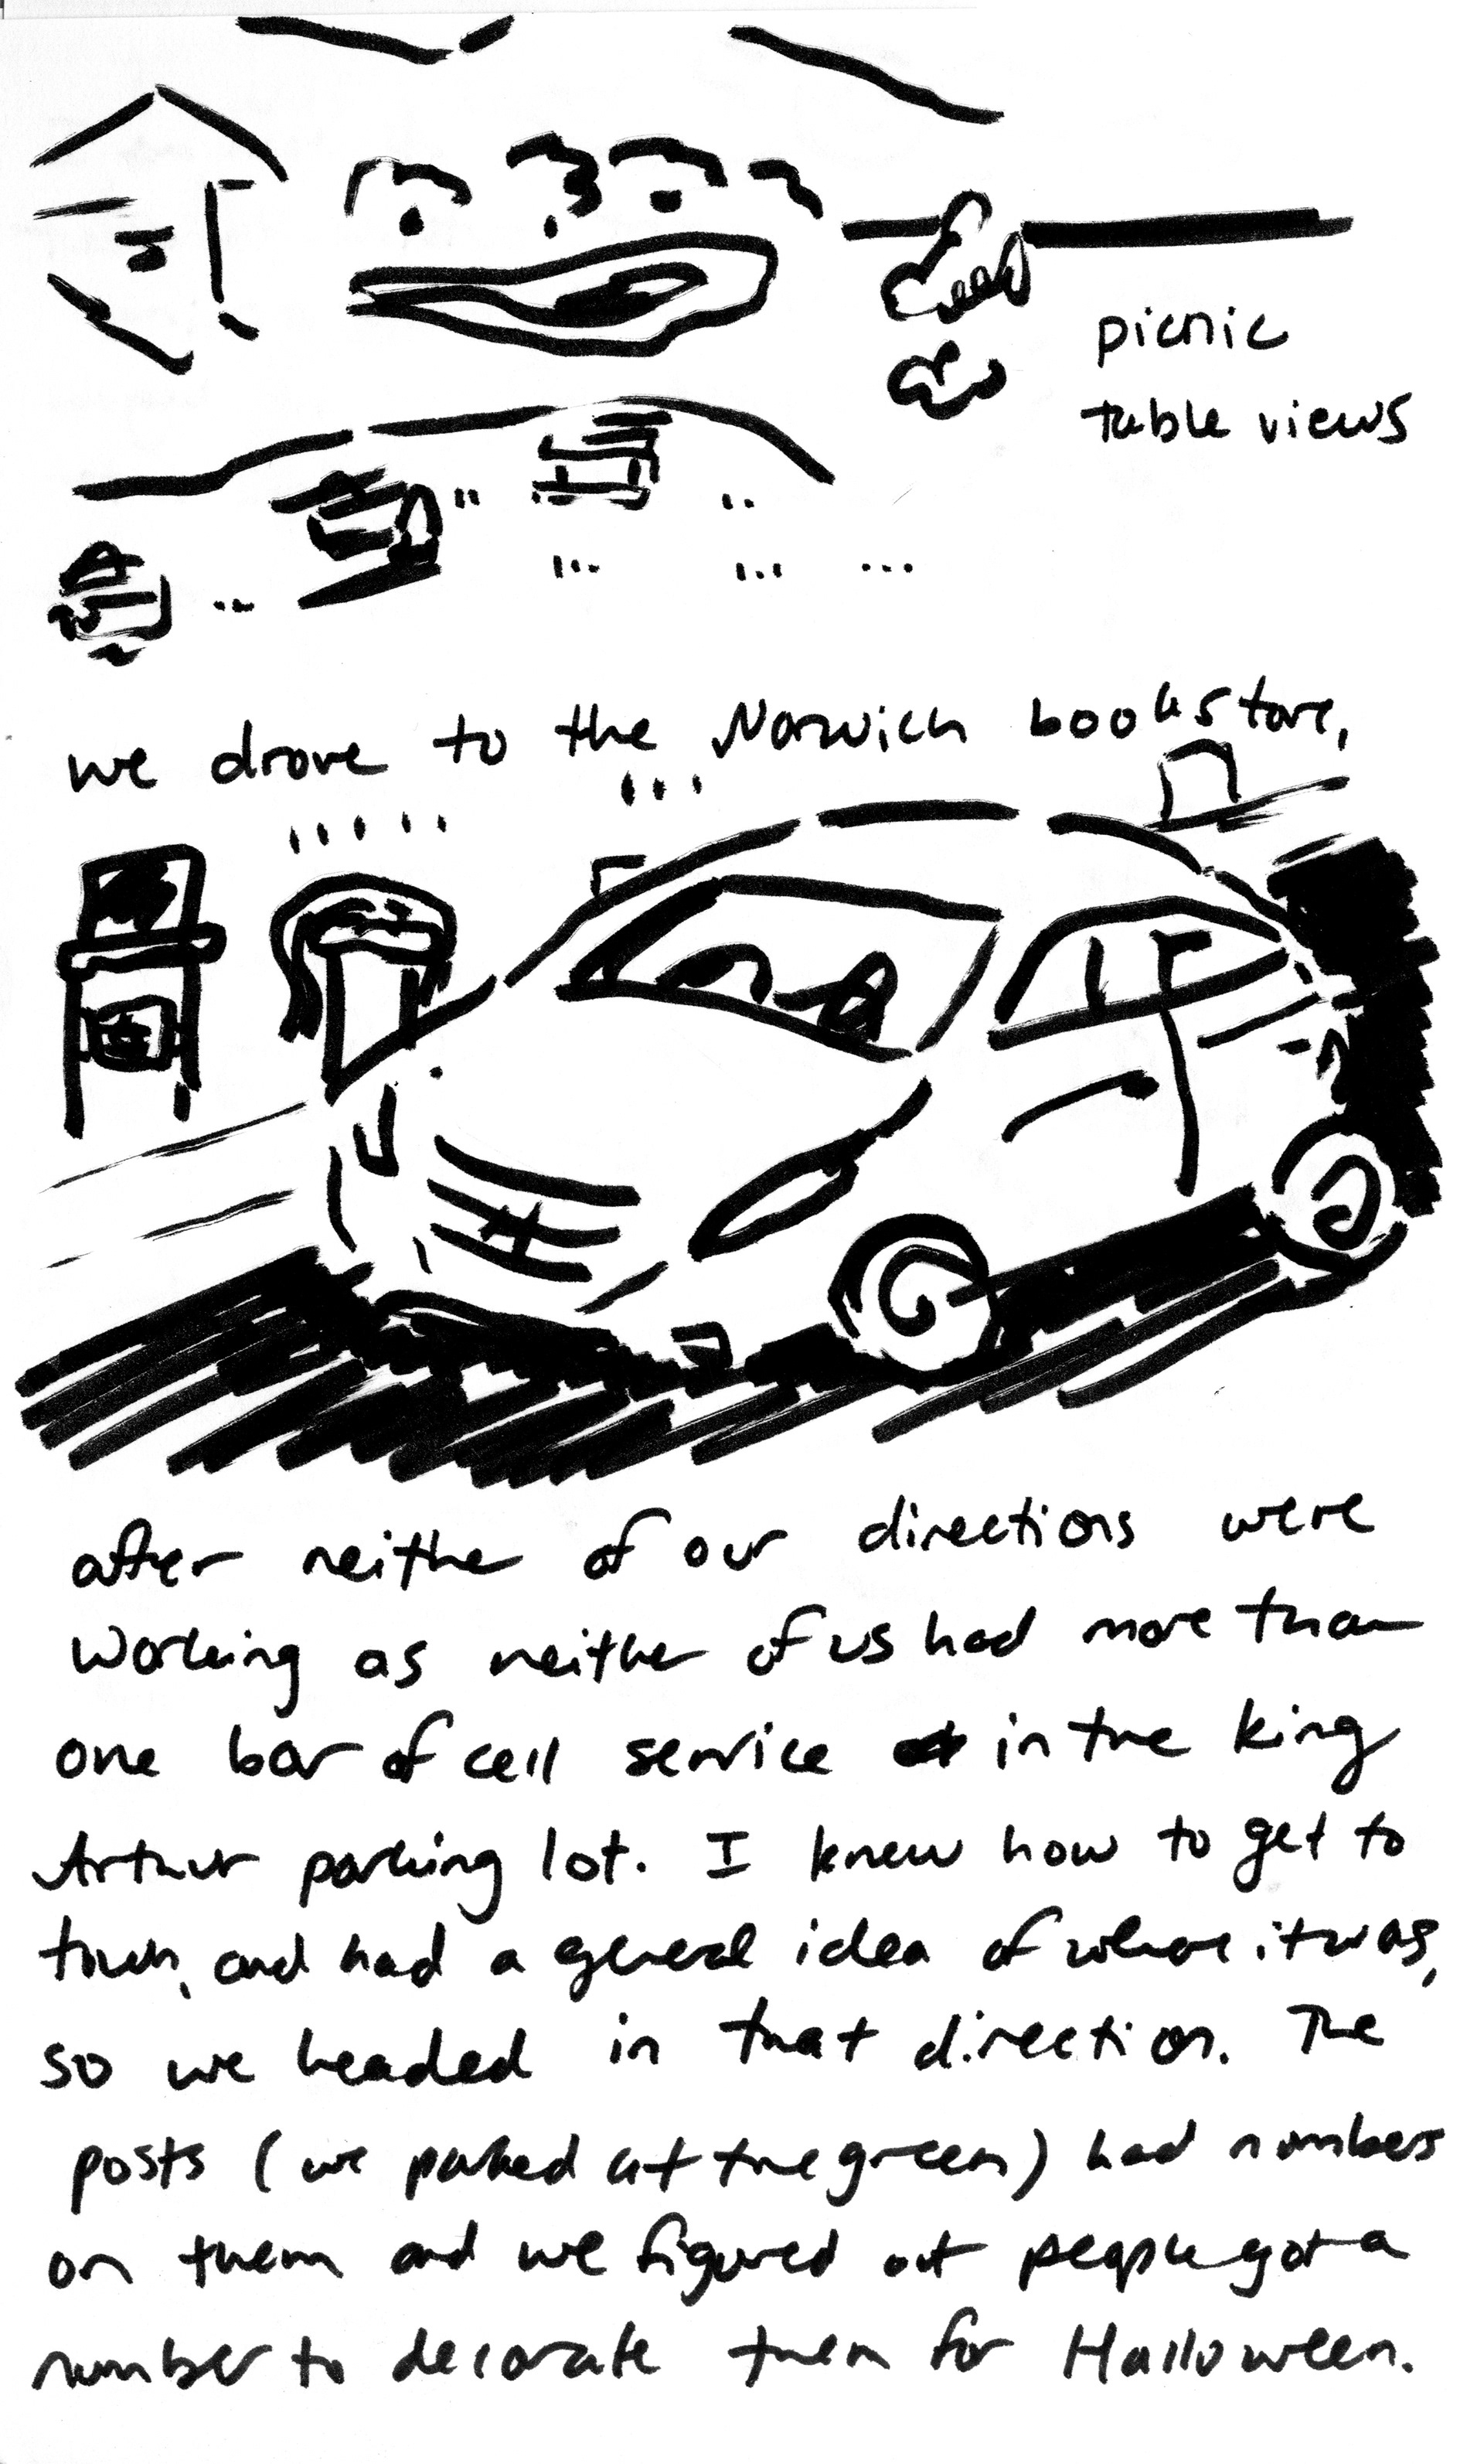 picnic
table views
we drove to the Norwich bookstore,
after neither of our directions were
working as neither of us had more than
one bar of cell service in the king
Arthur parking lot. I knew how to get to
town, and had a general idea of where it was,
so we headed in that direction. The
posts (we parked at the green) had numbers
on them and we figured out people got a
number to decorate them for Halloween.